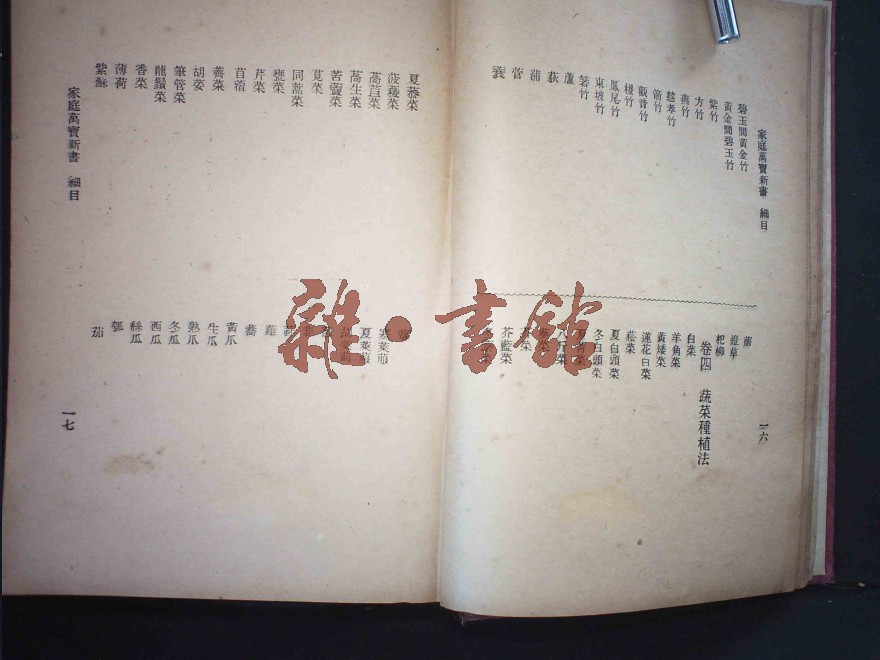 家庭萬寶新書 細目
碧玉間黃金竹
黃金間碧玉竹
紫竹
方竹
燕竹
慈孝竹
觀音竹
椶竹
鳳尾竹
東坡竹
箬竹
蘆
荻
蒲
菅
蓑
遼草
杞柳
卷四 蔬菜種植法
白菜
羊角菜
黃矮菜
蓮花白菜
菘菜
夏白頭菜
冬白頭菜
芥藍菜
一六
夏菾菜
菠薐菜
萵苣菜
萵生菜
苦蕒菜
莧菜
同蒿菜
甕菜
芹菜
薺菜
苜蓿
胡荽
筆管菜
龍鬚菜
香菜
薄荷
紫蘇
夏萊菔
黃瓜
生瓜
熟瓜
冬瓜
西瓜
絲瓜
瓠
茄
家庭萬寶新書 細目
一七
雜·書館